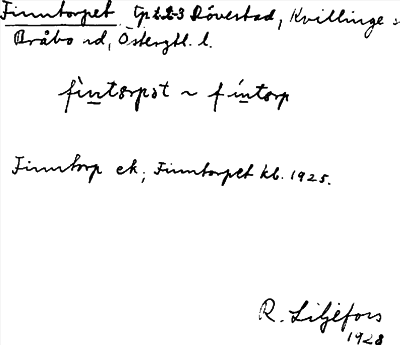 Finntorpet Tp 2.2-3 Rövestad, Kvillinge s
Bråbo hd, Östergtl. l.
fìntǫrpət ~ fíntǫrp
Finntorp ek; Finntorpet kb. 1925.
R. Liljefors
1928